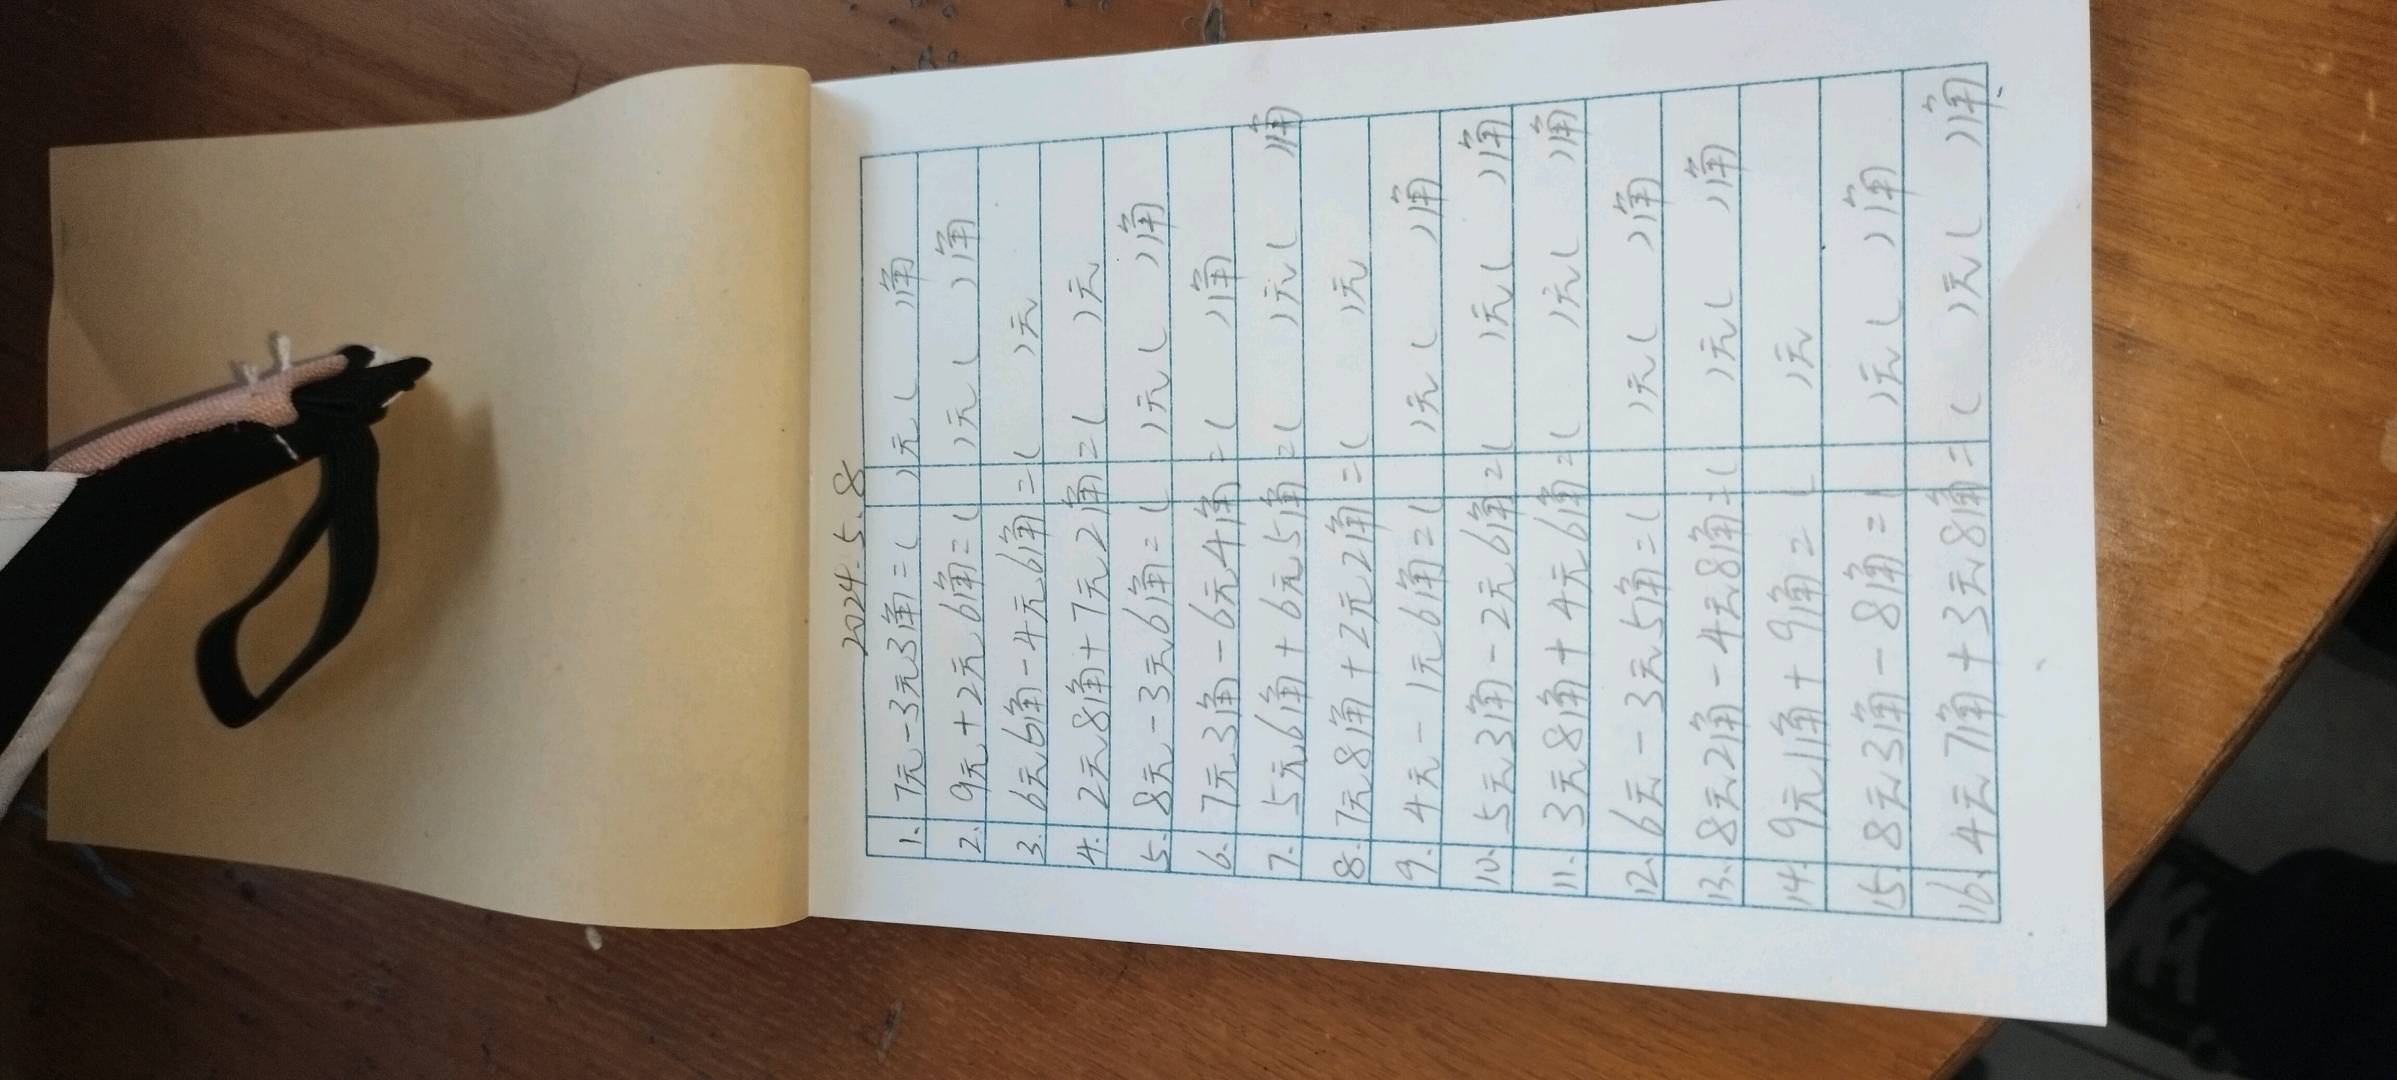 2024.5.8
1. 7元-3元3角=( )元( )角
2. 9元+2元6角=( )元( )角
3. 6元6角-4元6角=( )元
4. 2元8角+7元2角=( )元
5. 8元-3元6角=( )元( )角
6. 7元3角-6元4角=( )角
7. 5元6角+6元5角=( )元( )角
8. 7元8角+2元2角=( )元
9. 4元-1元6角=( )元( )角
10. 5元3角-2元6角=( )元( )角
11. 3元8角+4元6角=( )元( )角
12. 6元-3元5角=( )元( )角
13. 8元2角-4元8角=( )元( )角
14. 9元1角+9角=( )元
15. 8元3角-8角=( )元( )角
16. 4元7角+3元8角=( )元( )角